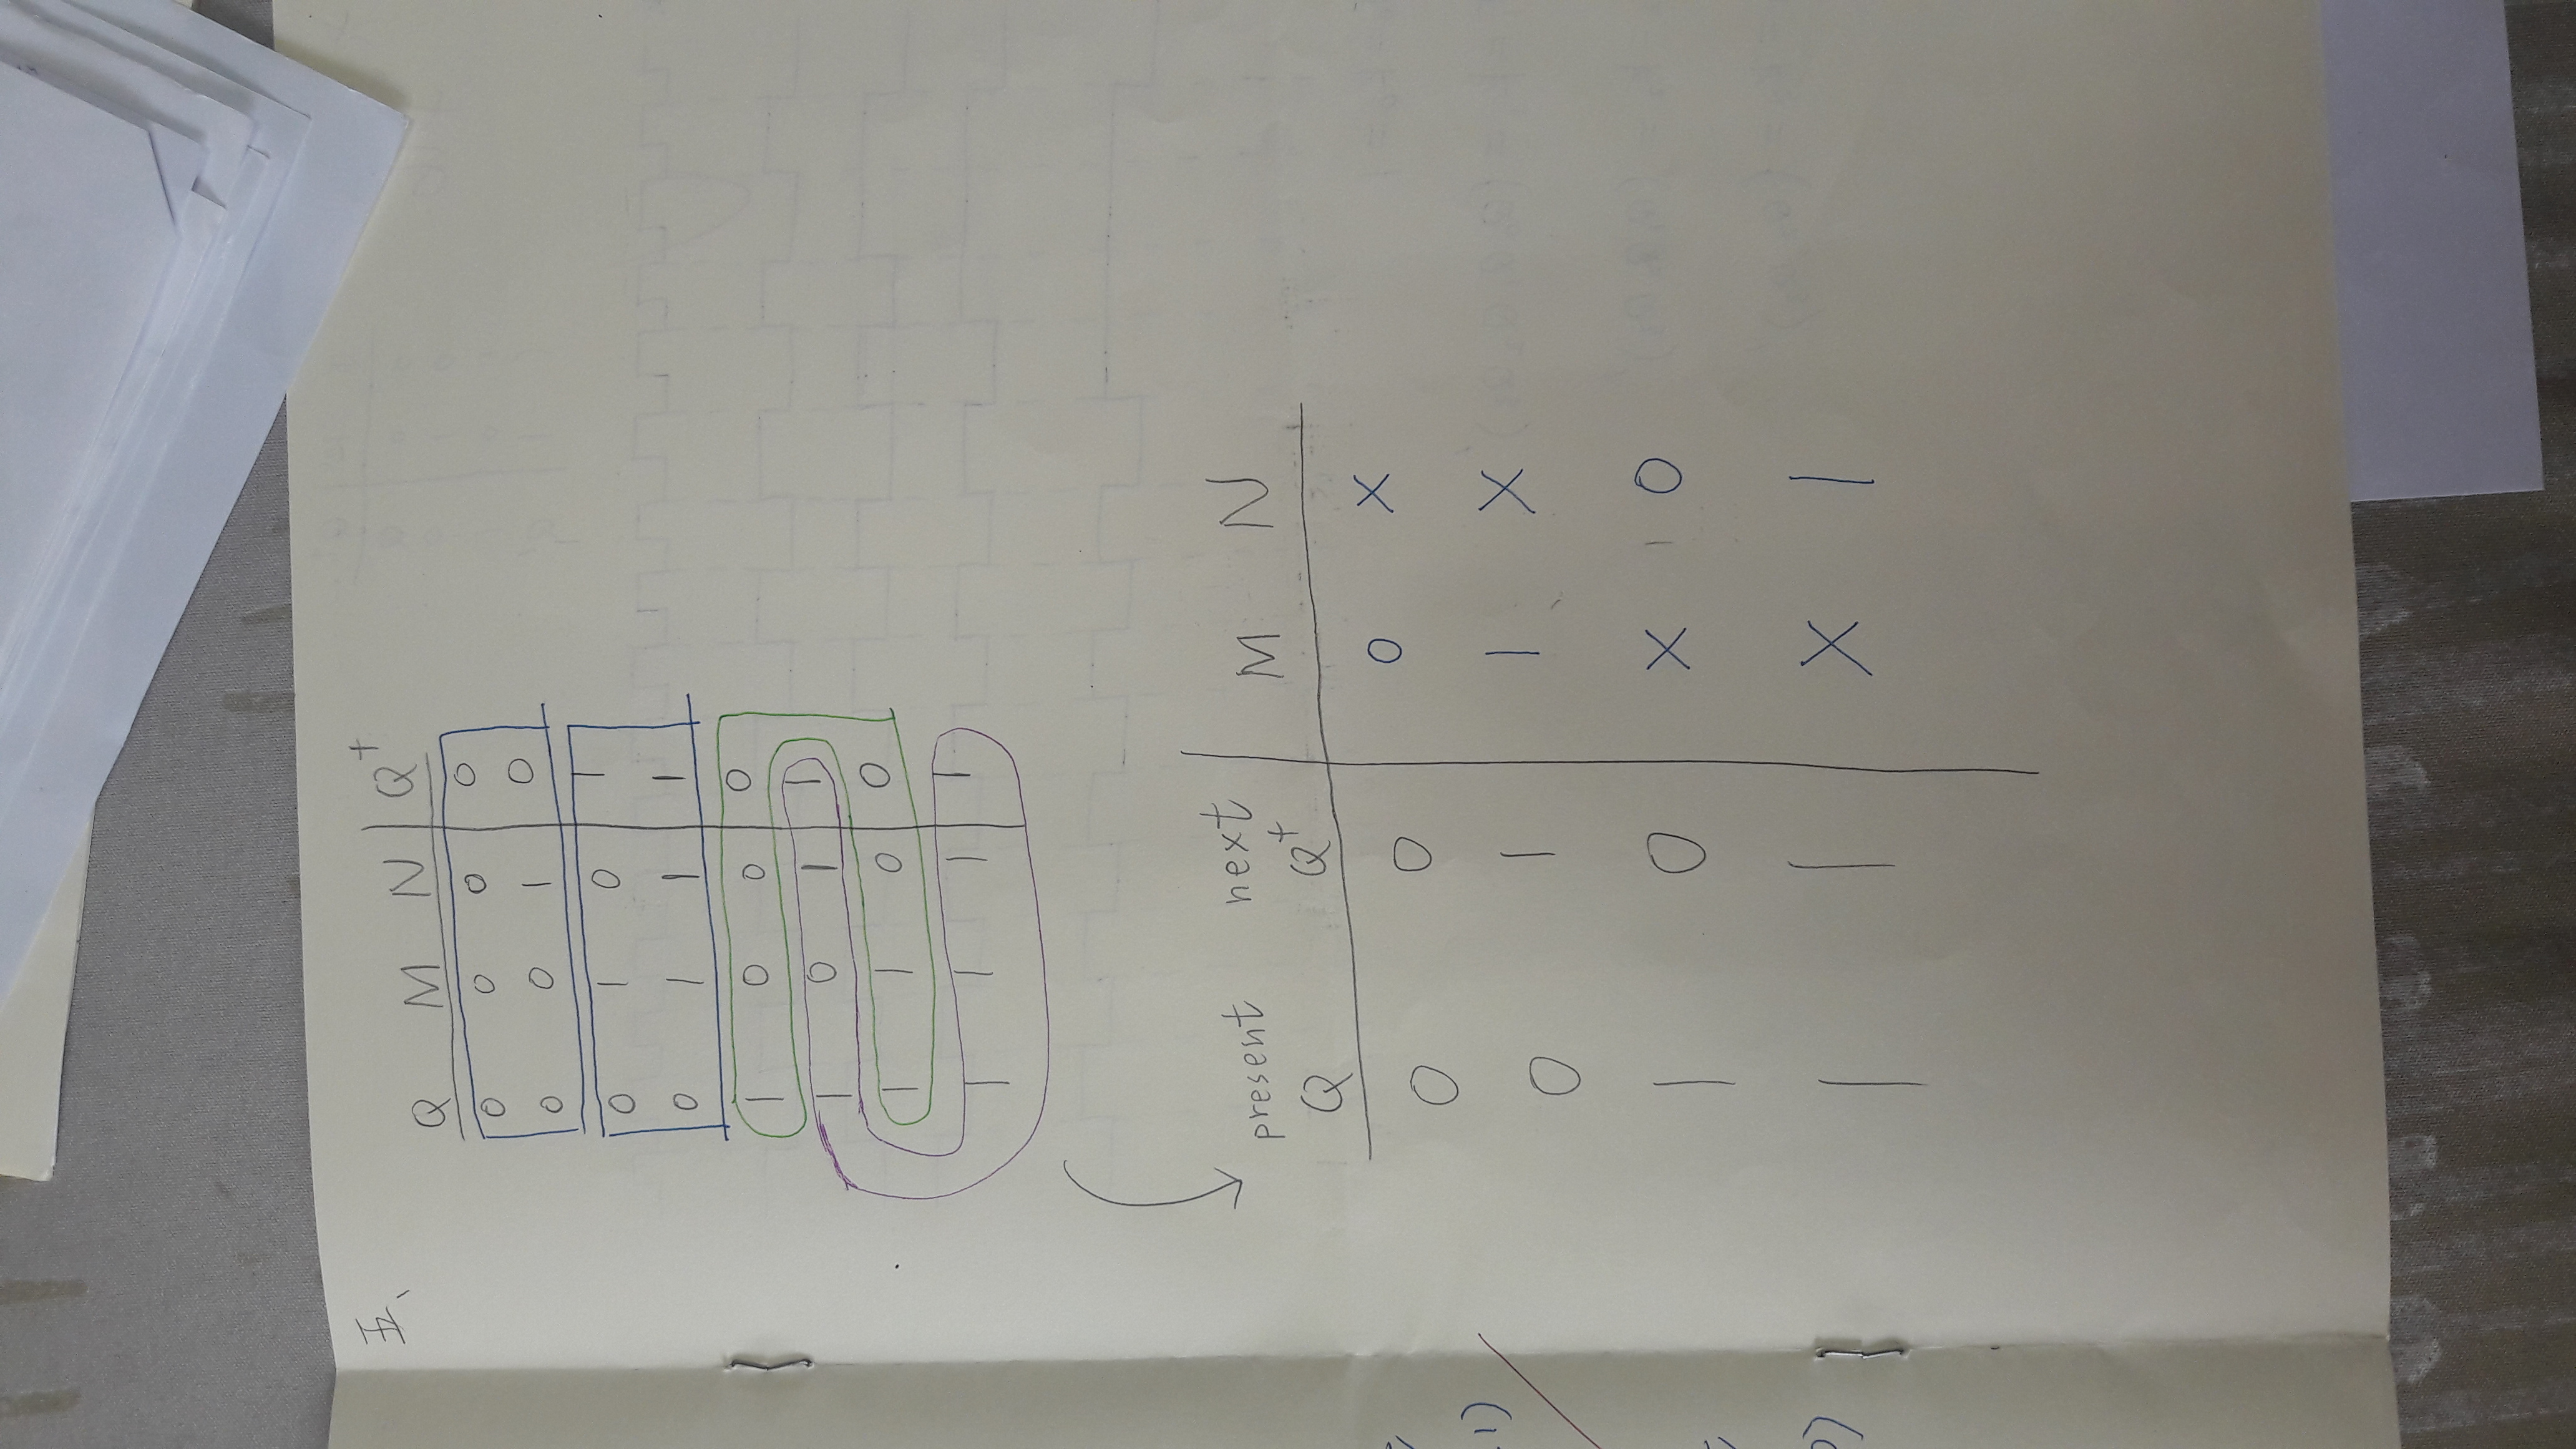 五、
Q M N Q⁺
0 0 0 0
0 0 1 0
0 1 0 1
0 1 1 1
1 0 0 0
1 0 1 1
1 1 0 0
1 1 1 1
present next
Q Q⁺ M N
0 0 0 X
0 1 1 X
1 0 X 0
1 1 X 1
1)
)